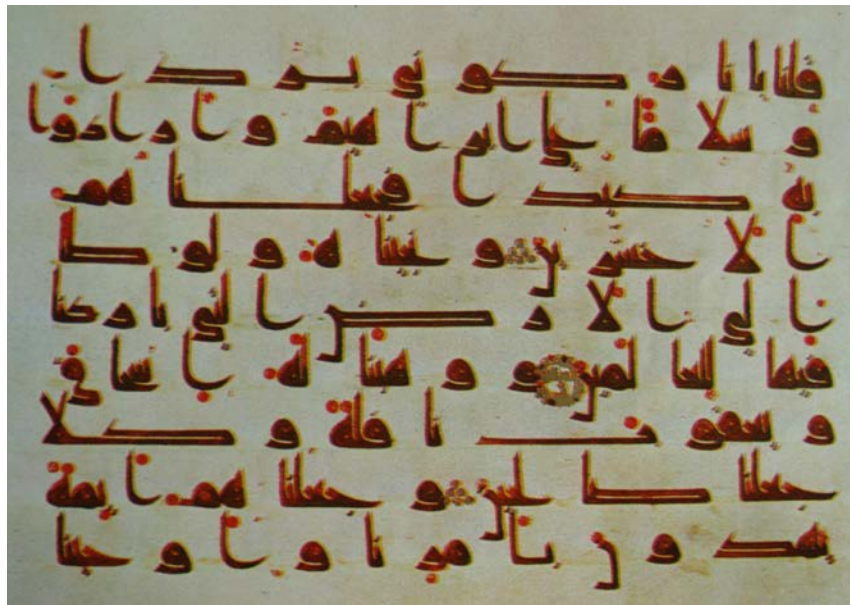 قلنا يا نار كوني بردا
وسلاما على ابراهيم وارادوا
به كيدا فجعلناهم
الاخسرين ونجيناه ولوطا
الى الارض التي باركنا
فيها للعالمين ووهبنا له اسحاق
ويعقوب نافلة وكلا
جعلنا صالحين وجعلناهم ايمة
يهدون بامرنا واوحينا